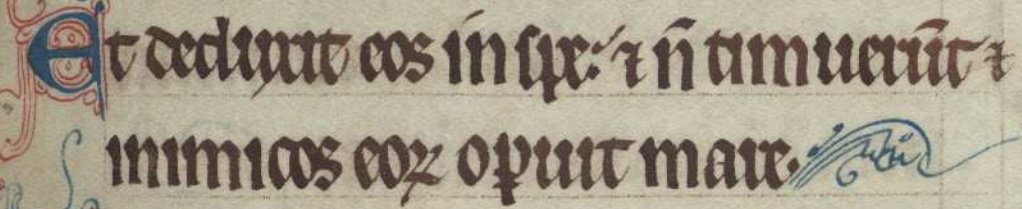 Et deduxit eos in spe: ⁊ n̄ timuerūt ⁊
inimicos eoꝝ oꝑuit mare.